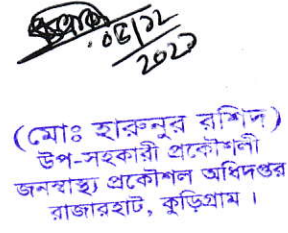 ০৫/১২
২০২৩
(মোঃ হারুনুর রশিদ)
উপ-সহকারী প্রকৌশলী
জনস্বাস্থ্য প্রকৌশল অধিদপ্তর
রাজারহাট, কুড়িগ্রাম ।